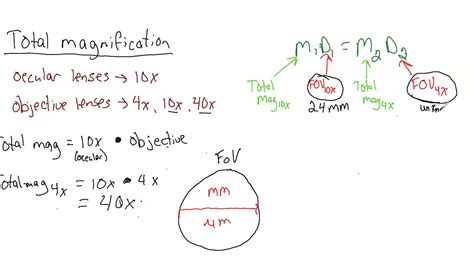 Total magnification
ocular lenses → 10x
objective lenses → 4x, 10x, 40x
Total mag = 10x • objective
(ocular)
Total mag 4x = 10x • 4x
= 40x
FoV
mm
μm
M₁D₁ = M₂D₂
Total mag 10x
FOV 10x
2.4 mm
Total mag 4x
FOV 4x